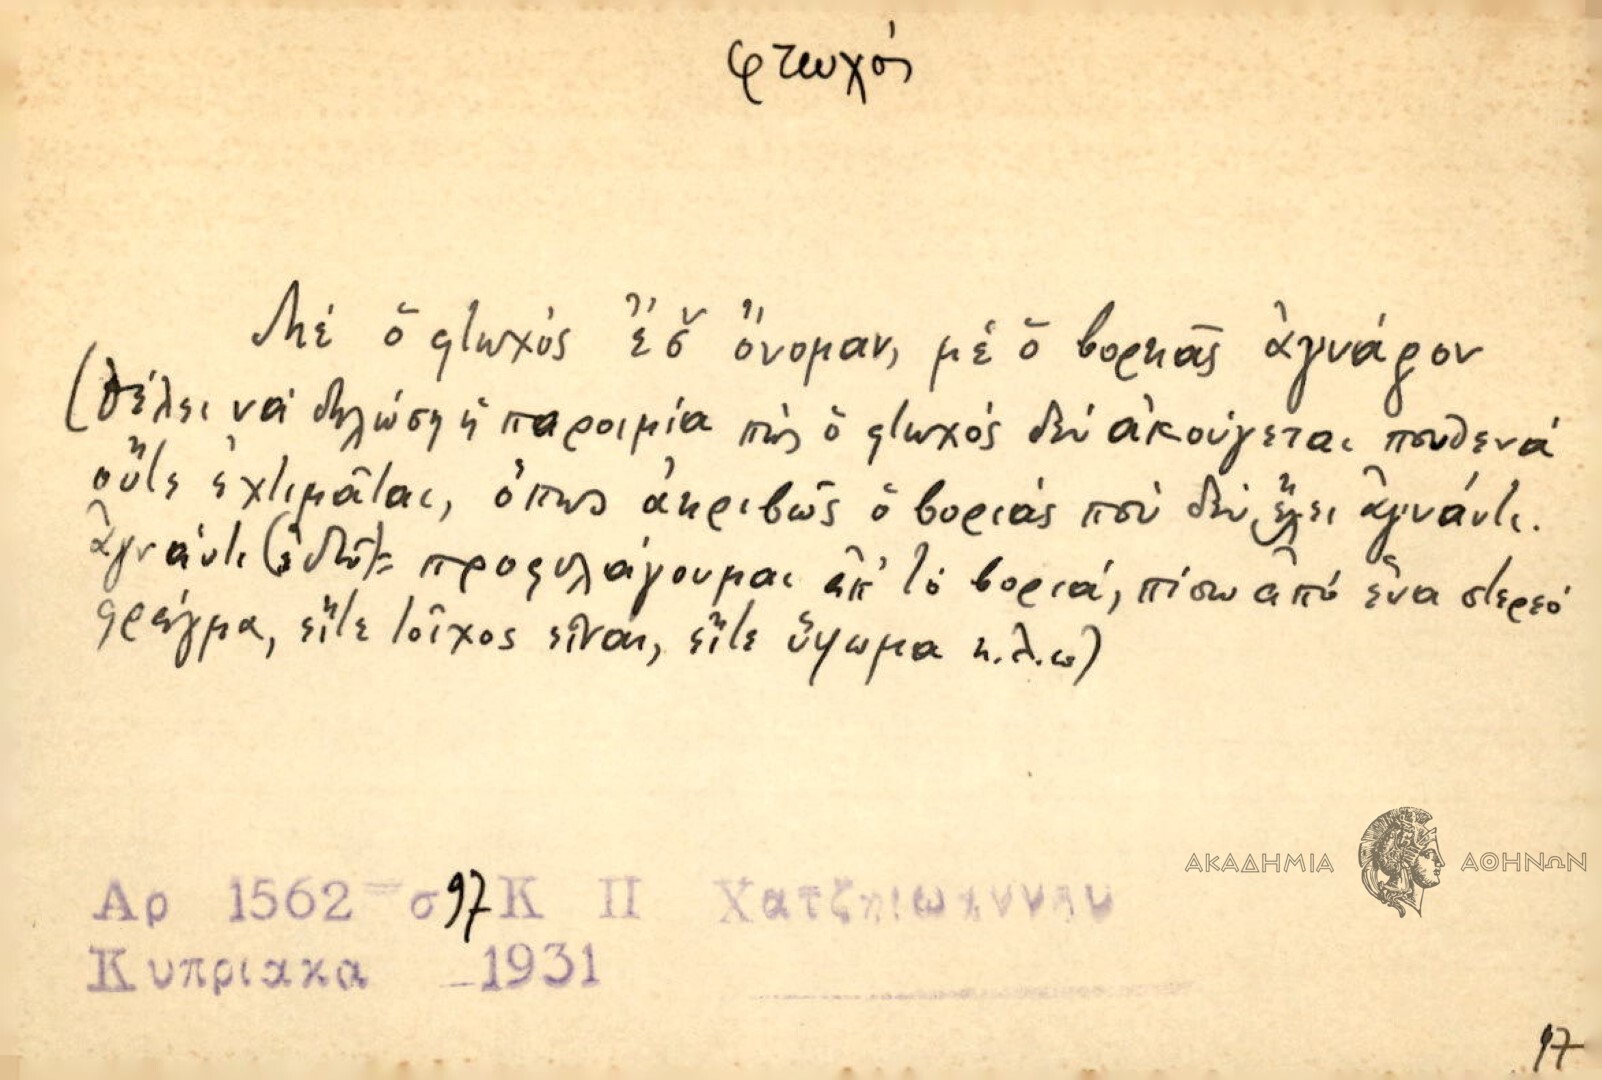 φτωχός
Μὲ ὁ φτωχὸς ἔσ̌ ὄνομαν, μὲ ὁ βορκᾶς ἀγνάρον
(θέλει νὰ δηλώση ἡ παροιμία πὼς ὁ φτωχὸς δὲν ἀκούγεται πουθενά
οὔτε ἐχτιμᾶται, ὅπως ἀκριβῶς ὁ βοριὰς ποὺ δὲν ἔχει ἀγνάντι.
ἀγνάντι (ἐδῶ)= προφυλάγουμαι ἀπ' τὸ βοριά, πίσω ἀπὸ ἕνα στερεό
φράγμα, εἴτε τοῖχος εἶναι, εἴτε ὕψωμα κ.λ.π)
Αρ 1562 = σ 97 Κ Π Χατζηιωαννου
Κυπριακα 1931
ΑΚΑΔΗΜΙΑ ΑΘΗΝΩΝ
97